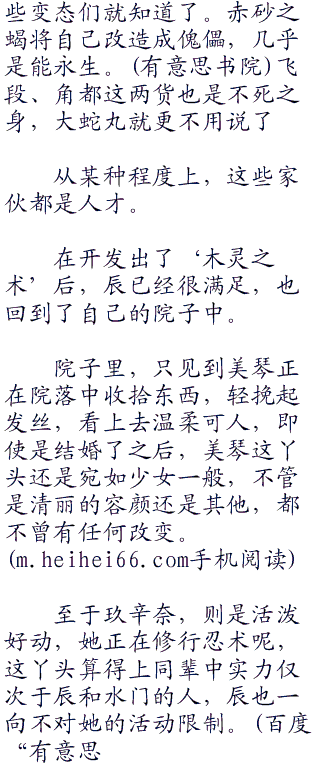 些变态们就知道了。赤砂之
蝎将自己改造成傀儡，几乎
是能永生。(有意思书院)飞
段、角都这两货也是不死之
身，大蛇丸就更不用说了
从某种程度上，这些家
伙都是人才。
在开发出了‘木灵之
术’后，辰已经很满足，也
回到了自己的院子中。
院子里，只见到美琴正
在院落中收拾东西，轻挽起
发丝，看上去温柔可人，即
使是结婚了之后，美琴这丫
头还是宛如少女一般，不管
是清丽的容颜还是其他，都
不曾有任何改变。
(m.heihei66.com手机阅读)
至于玖辛奈，则是活泼
好动，她正在修行忍术呢，
这丫头算得上同辈中实力仅
次于辰和水门的人，辰也一
向不对她的活动限制。(百度
“有意思